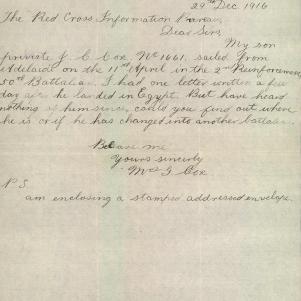 29th Dec. 1916
The Red Cross Information Bureau,
Dear Sirs,
My son
private J. C. Cox, No 1661, sailed from
Adelaide on the 11th April in the 2nd Reinforcements
50th Battalion. I had one letter written a few
days he landed in Egypt. But have heard
nothing of him since, could you find out where
he is or if he has changed into another battalion.
Believe me
Yours sincerly
Mrs G Cox
P.S.
am enclosing a stamped addressed envelope.